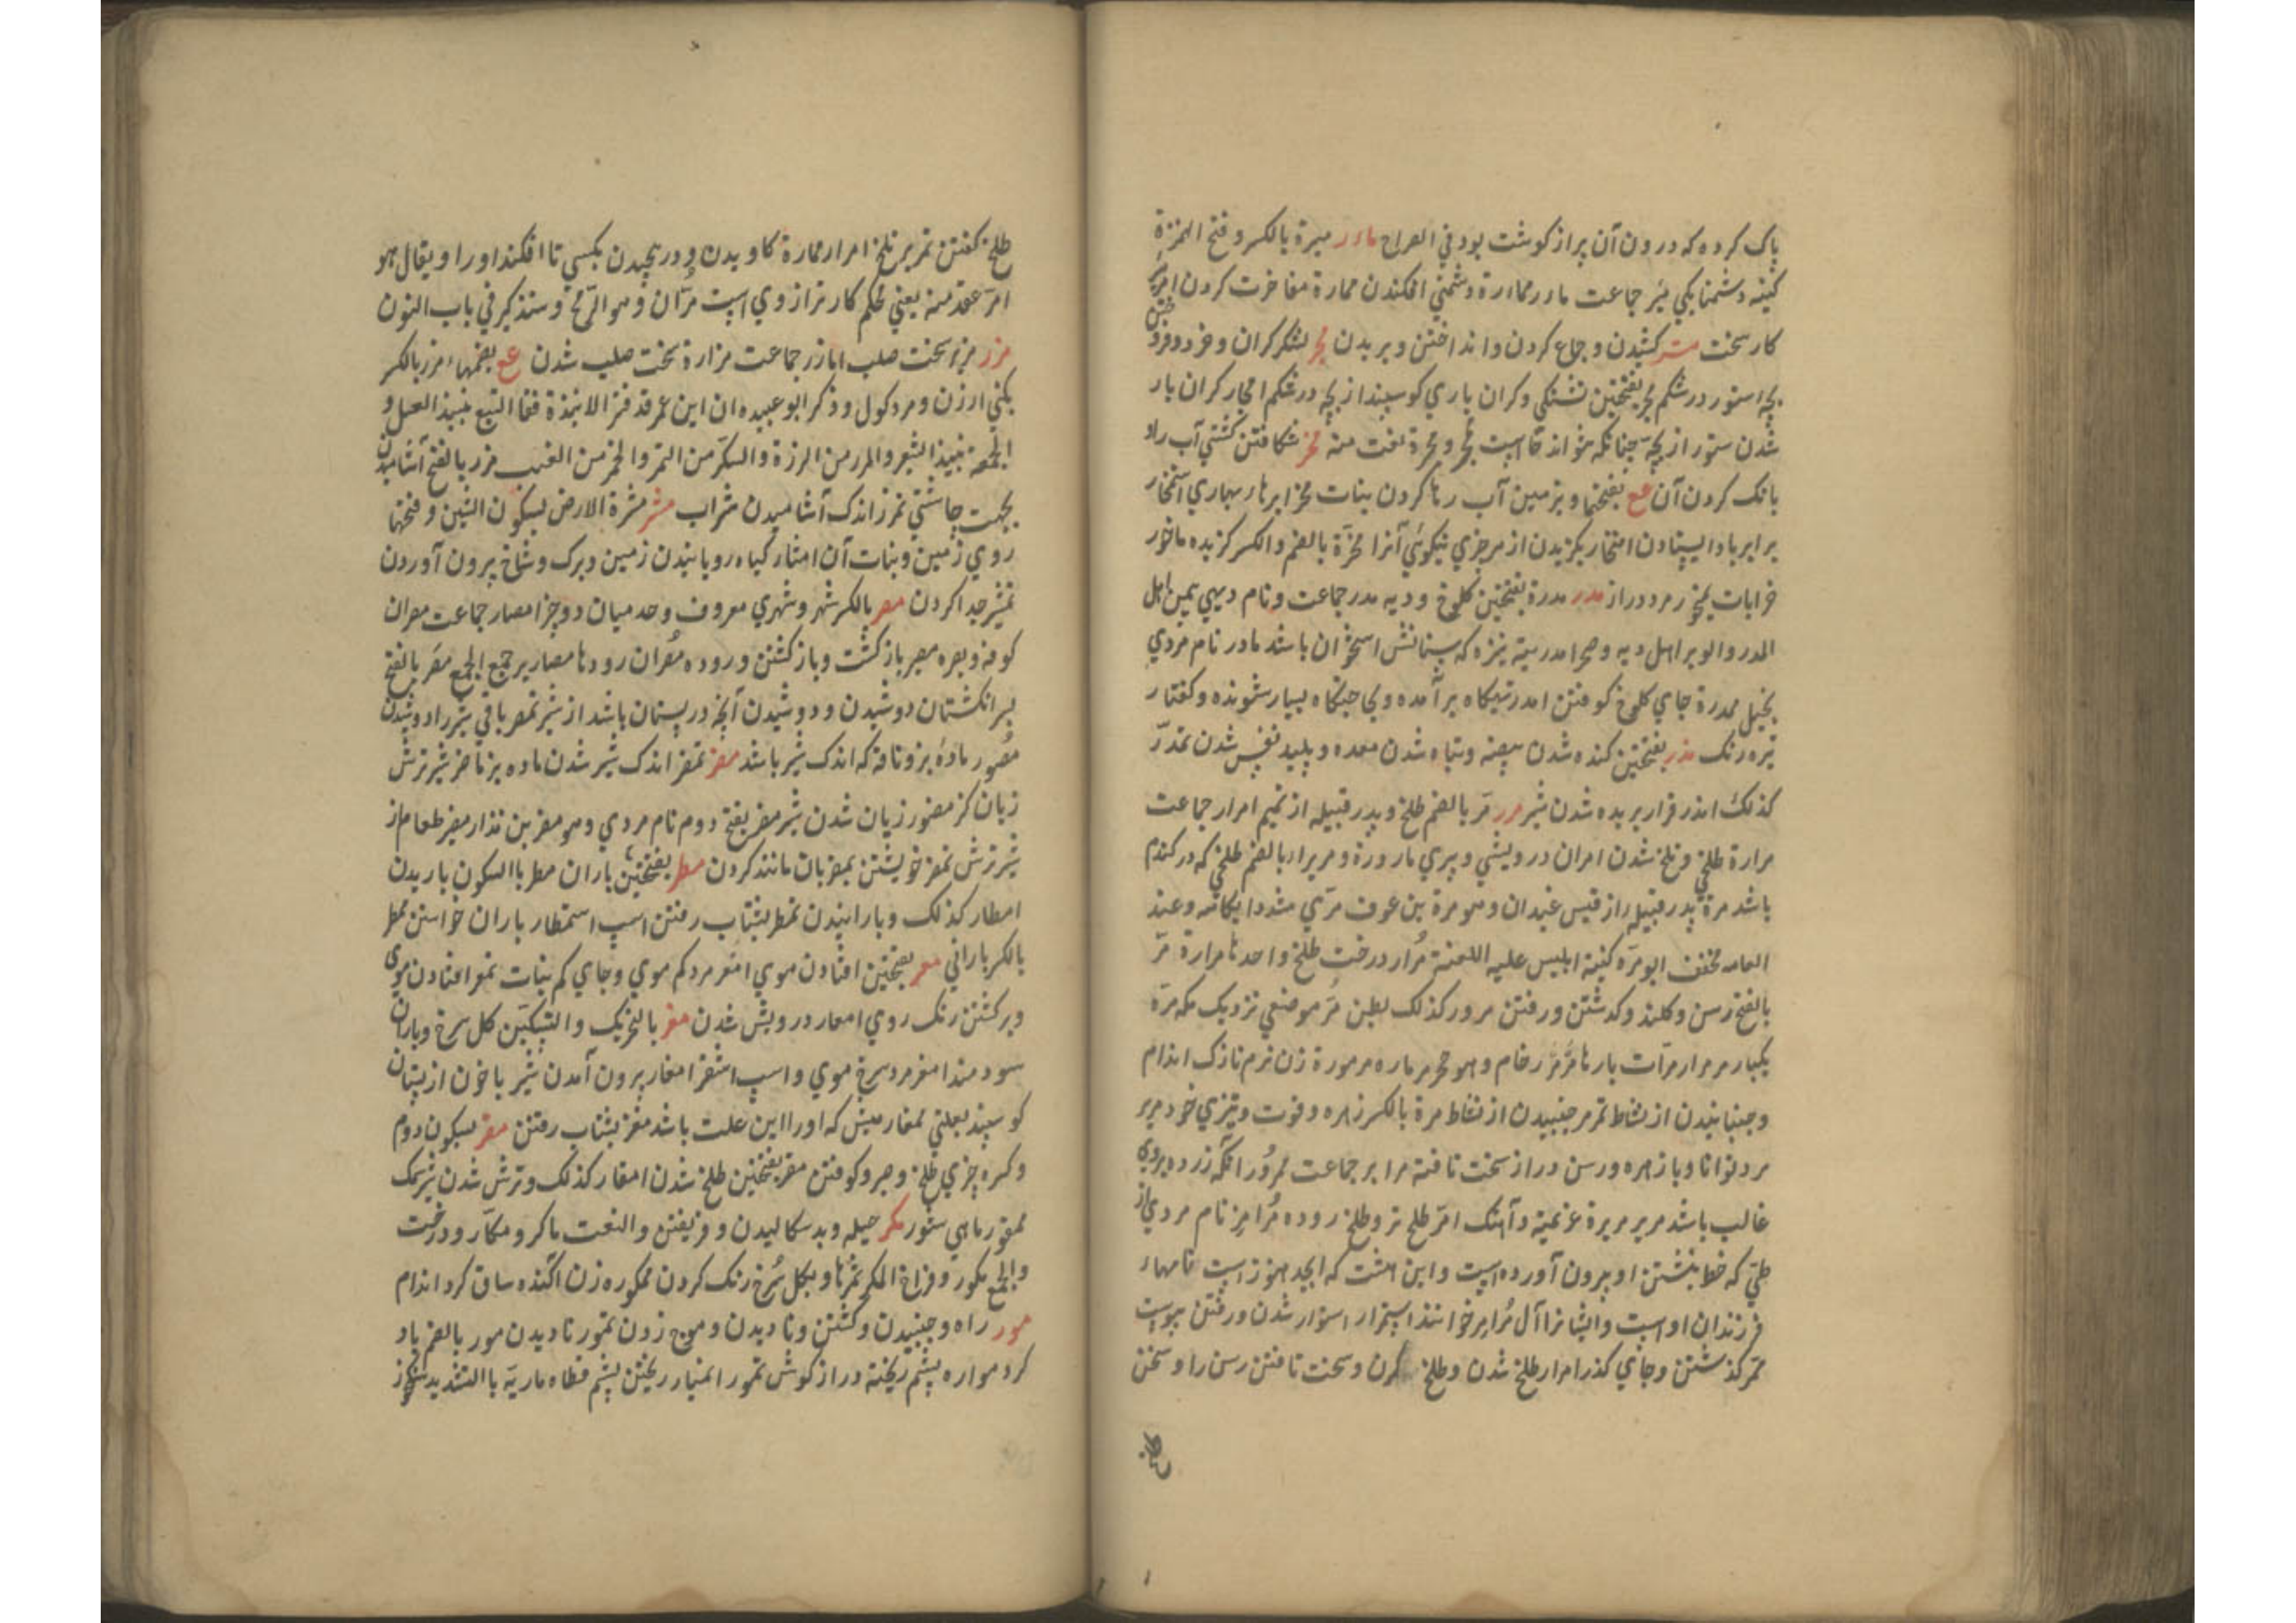 پاک کرده که درون آن پر از کوشت بود في الصراح ماءر میرة بالکسر و فتح الهمزة
کینه و شمنایکي مئر جماعت ماءر مماارة دشمني افکندن ممارة مفاخرت کردن امر
کار سخت متر کشیدن و جماع کردن و انداختن و بریدن مجر لشکر کران و خرد و فرد
بچه استور در شکم مجر بفتحتین تشنکي و کران باري کوسپند از بچه در شکم امجار کران بار
شدن ستور از بچه چنانکه نتواند خاست مجر و مجرة نعت منه مخر شکافتن کشتي آب را و
بانک کردن آن مع بفتحها و بزمین آب رها کردن بنات مخر ابرها بهاري استمخار
برابر باد ایستادن امتخار بکزیدن از هر چزي نیکوئي آنرا مخرة بالضم والکسر کزیده ماخور
خرابات یمخور مرد دراز مدر مدرة بفتحتین کلوخ و دیه مدر جماعت و نام دیهي بیمن اهل
المدر والوبر اهل دیه و صحرا مدریة نیزه که سنانش استخوان باشد مادر نام مردي
بخیل ممدرة جاي کلوخ کوفتن امدر تهیکاه برآمده و بجا جنکاه بسیار شونده و کفتار
تیره رنک مذر بفتحتین کنده شدن بیضه و تباه شدن معده و پلید نفس شدن تمذر
کذلک امذر قرار بریده شدن شیر مرر مر بالضم طلخ و پدر قبیله از تمیم امرار جماعت
مرارة طلخي و تلخ شدن امران درویشي و پیري مارورة و مریراء بالضم طلخي که در کندم
باشد مرة پدر قبیله از قیس غیدان و هو مرة بن عوف مري مشددا یکامه و عند
العامه مخفف ابو مره کنیة ابلیس علیه اللعنة مرار درخت طلخ واحدها مرارة مر
بالفتح رسن و کلند و کدشتن و رفتن مرور کذلک بطن مر موضعي نزدیک مکه مرة
یکبار مر مرار مرات بارها مرمر رخام و هو حجر مرماره مرمورة زن نرم نازک اندام
و جنبانیدن از نشاط تمرمر جنبیدن از نشاط مرة بالکسر زهره و قوت و تیزي خرد مریر
مرد توانا و با زهره و رسن دراز سخت تافته مرایر جماعت ممرور انکه زرد و بروي
غالب باشد مریر مریرة عزیمة و آهنک امر طلخ تر و طلخ روده مرامر نام مردي از
طي که خط نبشتن او برون آورده است و این هشت که ابجد هوز است نامهاء
فرزندان اوست و ایشانرا آل مرامر خوانند استمرار استوار شدن و رفتن پیوست
ممر کذشتن و جاي کذر امرار طلخ شدن و طلخ کردن و سخت تافتن رسن را و سخن
طلخ کفتن تمریر تلخ امرار ممارة کاویدن و در پیچیدن بکسي تا افکند اورا و یقال هو
امر عقدة منه یعني محکم کار تر از وي است مران و هو الرمح و سنذکر في باب النون
مزر مزیر سخت صلب امازر جماعت مزارة سخت صلب شدن مع بضمها مزر بالکسر
بکني ارزن و مرد کول و ذکر ابو عبیده ان ابن عمر قد فسر الانبذة فقال البتع نبیذ العسل و
الجعة نبیذ الشعیر والمزر من الذرة والسکر من التمر والخمر من العنب مزر بالفتح آشامیدن
بجهت چاشني تمزر اندک آشامیدن شراب مشر مشرة الارض بسکون الشین و فتحها
روي زمین و نبات آن امشار کیاه رویانیدن زمین و برک و شاخ برون آوردن
تمشیر جدا کردن مصر بالکسر شهر و شهري معروف و حد میان دو چز امصار جماعت مصران
کوفه و بصره مصیر بازکشت و بازکشتن و روده مصران رودها مصاریر جمع الجمع مصر بالفتح
بسر انکشتان دوشیدن و دوشیدن آنچه در پستان باشد از شیر تمصر باقي شیر را دوشیدن
مصور مادهٔ بز و ناقه که اندک شیر باشد مضر تمضر اندک شیر شدن ماده بز ماضر شیر ترش
زبان کز مضور زبان شدن شیر مضر بفتح دوم نام مردي و هو مضر بن نذار مضیر طعام از
شیر ترش تمضر خویشتن بمضریان مانند کردن مطر بفتحتین باران مطر باالسکون باریدن
امطار کذلک و بارانیدن تمطر بشتاب رفتن اسپ استمطار باران خواستن ممطر
بالکسر باراني معر بفتحتین افتادن موي امعر مرد کم موي و جاي کم نبات تمعر افتادن موي
و برکشتن رنک روي امعار درویش شدن مغر بالتحریک والتسکین کل سرخ و باران
سودمند امغر مرد سرخ موي و اسپ اشقر امغار برون آمدن شیر با خون از پستان
کوسپند بعلتي ممغار میش که اورا این علت باشد مغر بشتاب رفتن مقر بسکون دوم
و کسره چزي طلخ و صبر و کوفتن مقر بفتحتین طلخ شدن امقار کذلک و ترش شدن شیر نمک
ممقور ماهي شور مکر حیله و بد سکالیدن و فریفتن والنعت ماکر و مکار و درخت
والجمع مکور و فراخ المکر ثمرتها و بکل سرخ رنک کردن ممکوره زن اکنده ساق کرد اندام
مور راه و جنبیدن و کشتن و نادیدن و موج زدن تمور نادیدن مور بالضم باد
کرد مواره پشم ریخته دراز کوش تمور انمیار ریختن پشم قطاه ماریة باالتشدید سنکخوار